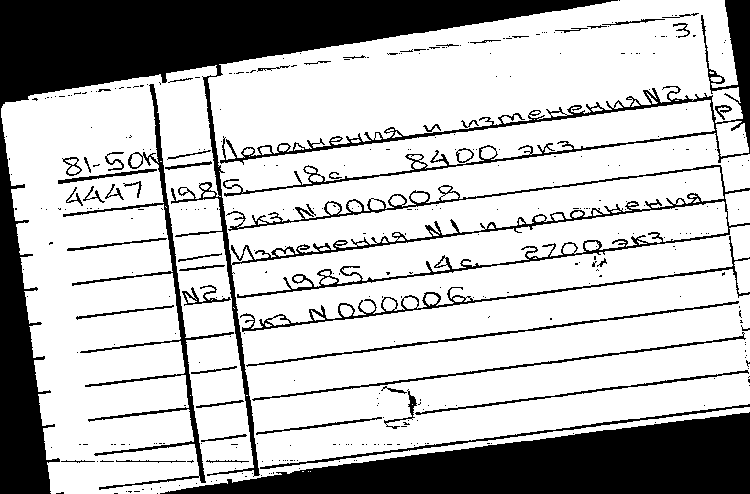 3.
81-50к — Дополнения и изменения N2...
4447 1985. 18с. 8400 экз.
Экз. N 000008
— Изменения N1 и дополнения
N2. 1985. . . 14с. 2700 экз.
Экз N 000006.